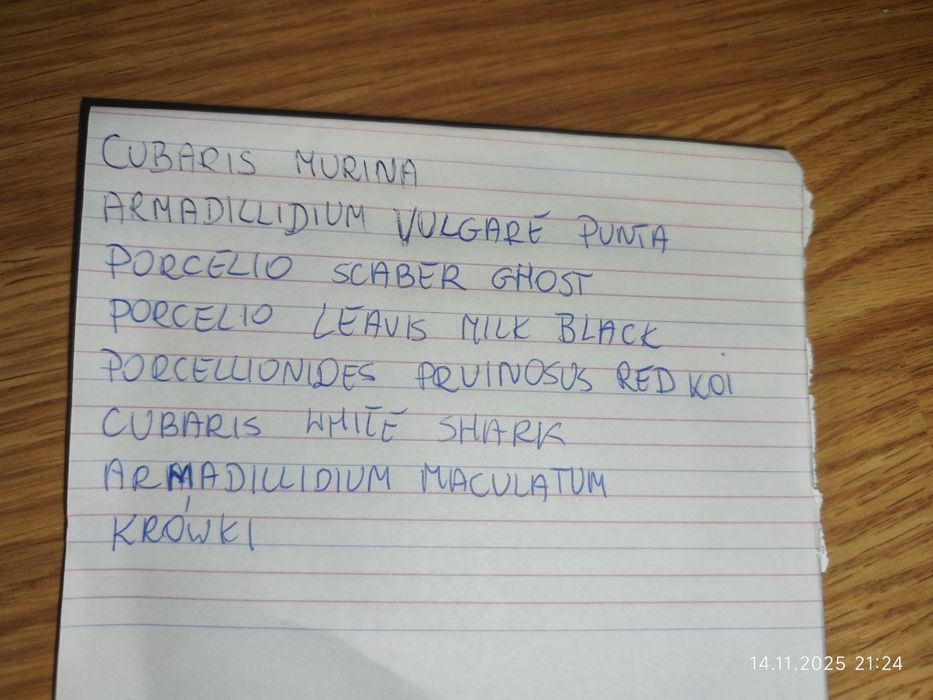 CUBARIS MURINA
ARMADILLIDIUM VULGARE PUNTA
PORCELIO SCABER GHOST
PORCELIO LEAVIS MILK BLACK
PORCELLIONIDES PRUINOSUS RED KOI
CUBARIS WHITE SHARK
ARMADILLIDIUM MACULATUM
KRÓWKI
14.11.2025 21:24